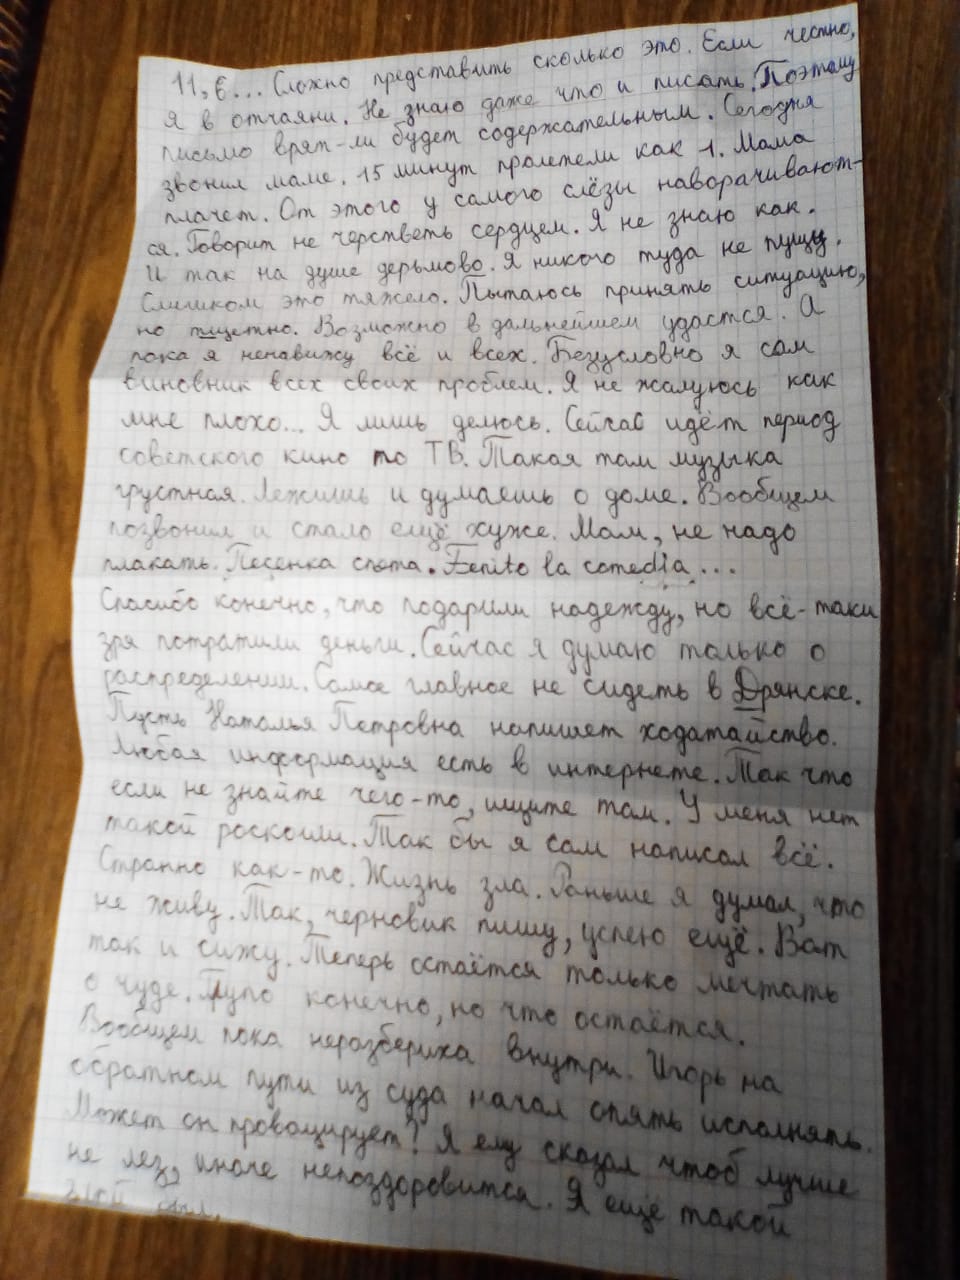 11,6... Сложно представить сколько это. Если честно,
я в отчаяни. Не знаю даже что и писать. Поэтому
письмо врят-ли будет содержательным. Сегодня
звонил маме. 15 минут пролетели как 1. Мама
плачет. От этого у самого слёзы наворачивают-
ся. Говорит не черстветь сердцем. Я не знаю как.
И так на душе дерьмово. Я никого туда не пущу.
Слишком это тяжело. Пытаюсь принять ситуацию,
но тщетно. Возможно в дальнейшем удастся. А
пока я ненавижу всё и всех. Безусловно я сам
виновник всех своих проблем. Я не жалуюсь как
мне плохо... Я лишь делюсь. Сейчас идёт период
советского кино по ТВ. Такая там музыка
грустная. Лежишь и думаешь о доме. Вообщем
позвонил и стало ещё хуже. Мам, не надо
плакать. Песенка спета. Fenito la comedia...
Спасибо конечно, что подарили надежду, но всё-таки
зря потратили деньги. Сейчас я думаю только о
распределении. Самое главное не сидеть в Дрянске.
Пусть Наталья Петровна напишет ходатайство.
Любая информация есть в интернете. Так что
если не знайте чего-то, ищите там. У меня нет
такой роскоши. Так бы я сам написал всё.
Странно как-то. Жизнь зла. Раньше я думал, что
не живу. Так, черновик пишу, успею ещё. Вот
так и сижу. Теперь остаётся только мечтать
о чуде. Глупо конечно, но что остаётся.
Вообщем пока неразбериха внутри. Игорь на
обратном пути из суда начал опять исполнять.
Может он провоцирует? Я ему сказал чтоб лучше
не лез, иначе непоздоровится. Я ещё такой
злой был.